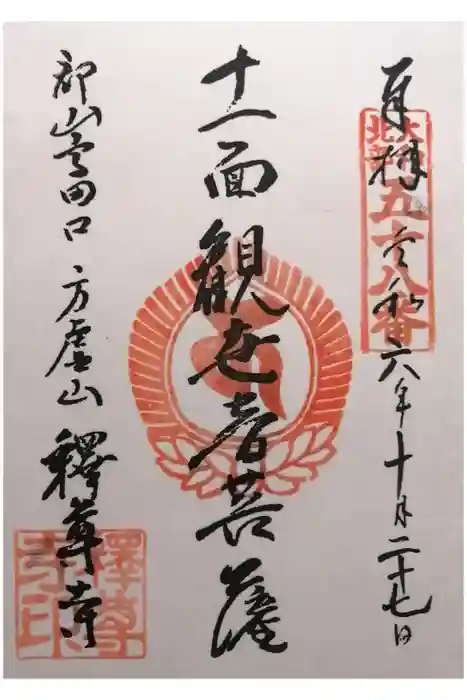 奉拝 令和六年十月二十七日
大和北部五十八番
十一面観世音菩薩
郡山高田口 方虚山 釋尊寺
釋尊寺印